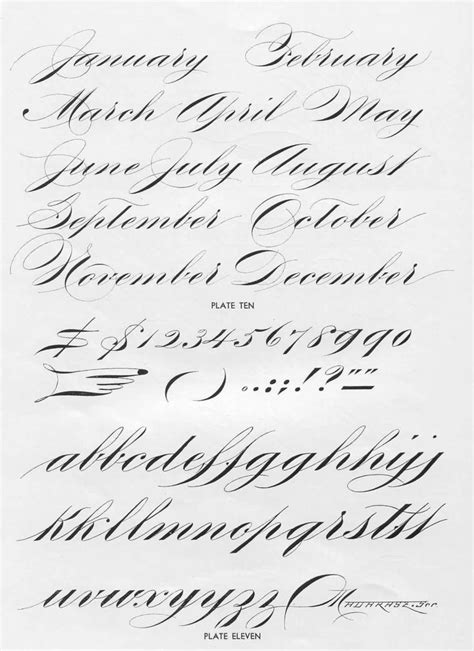 January February
March April May
June July August
September October
November December
PLATE TEN
$ 1234567890
( ) . . : ; ! ? " "
abbcdeffgghhijj
kkllmnopqrsttt
uvwxyyzz
PLATE ELEVEN